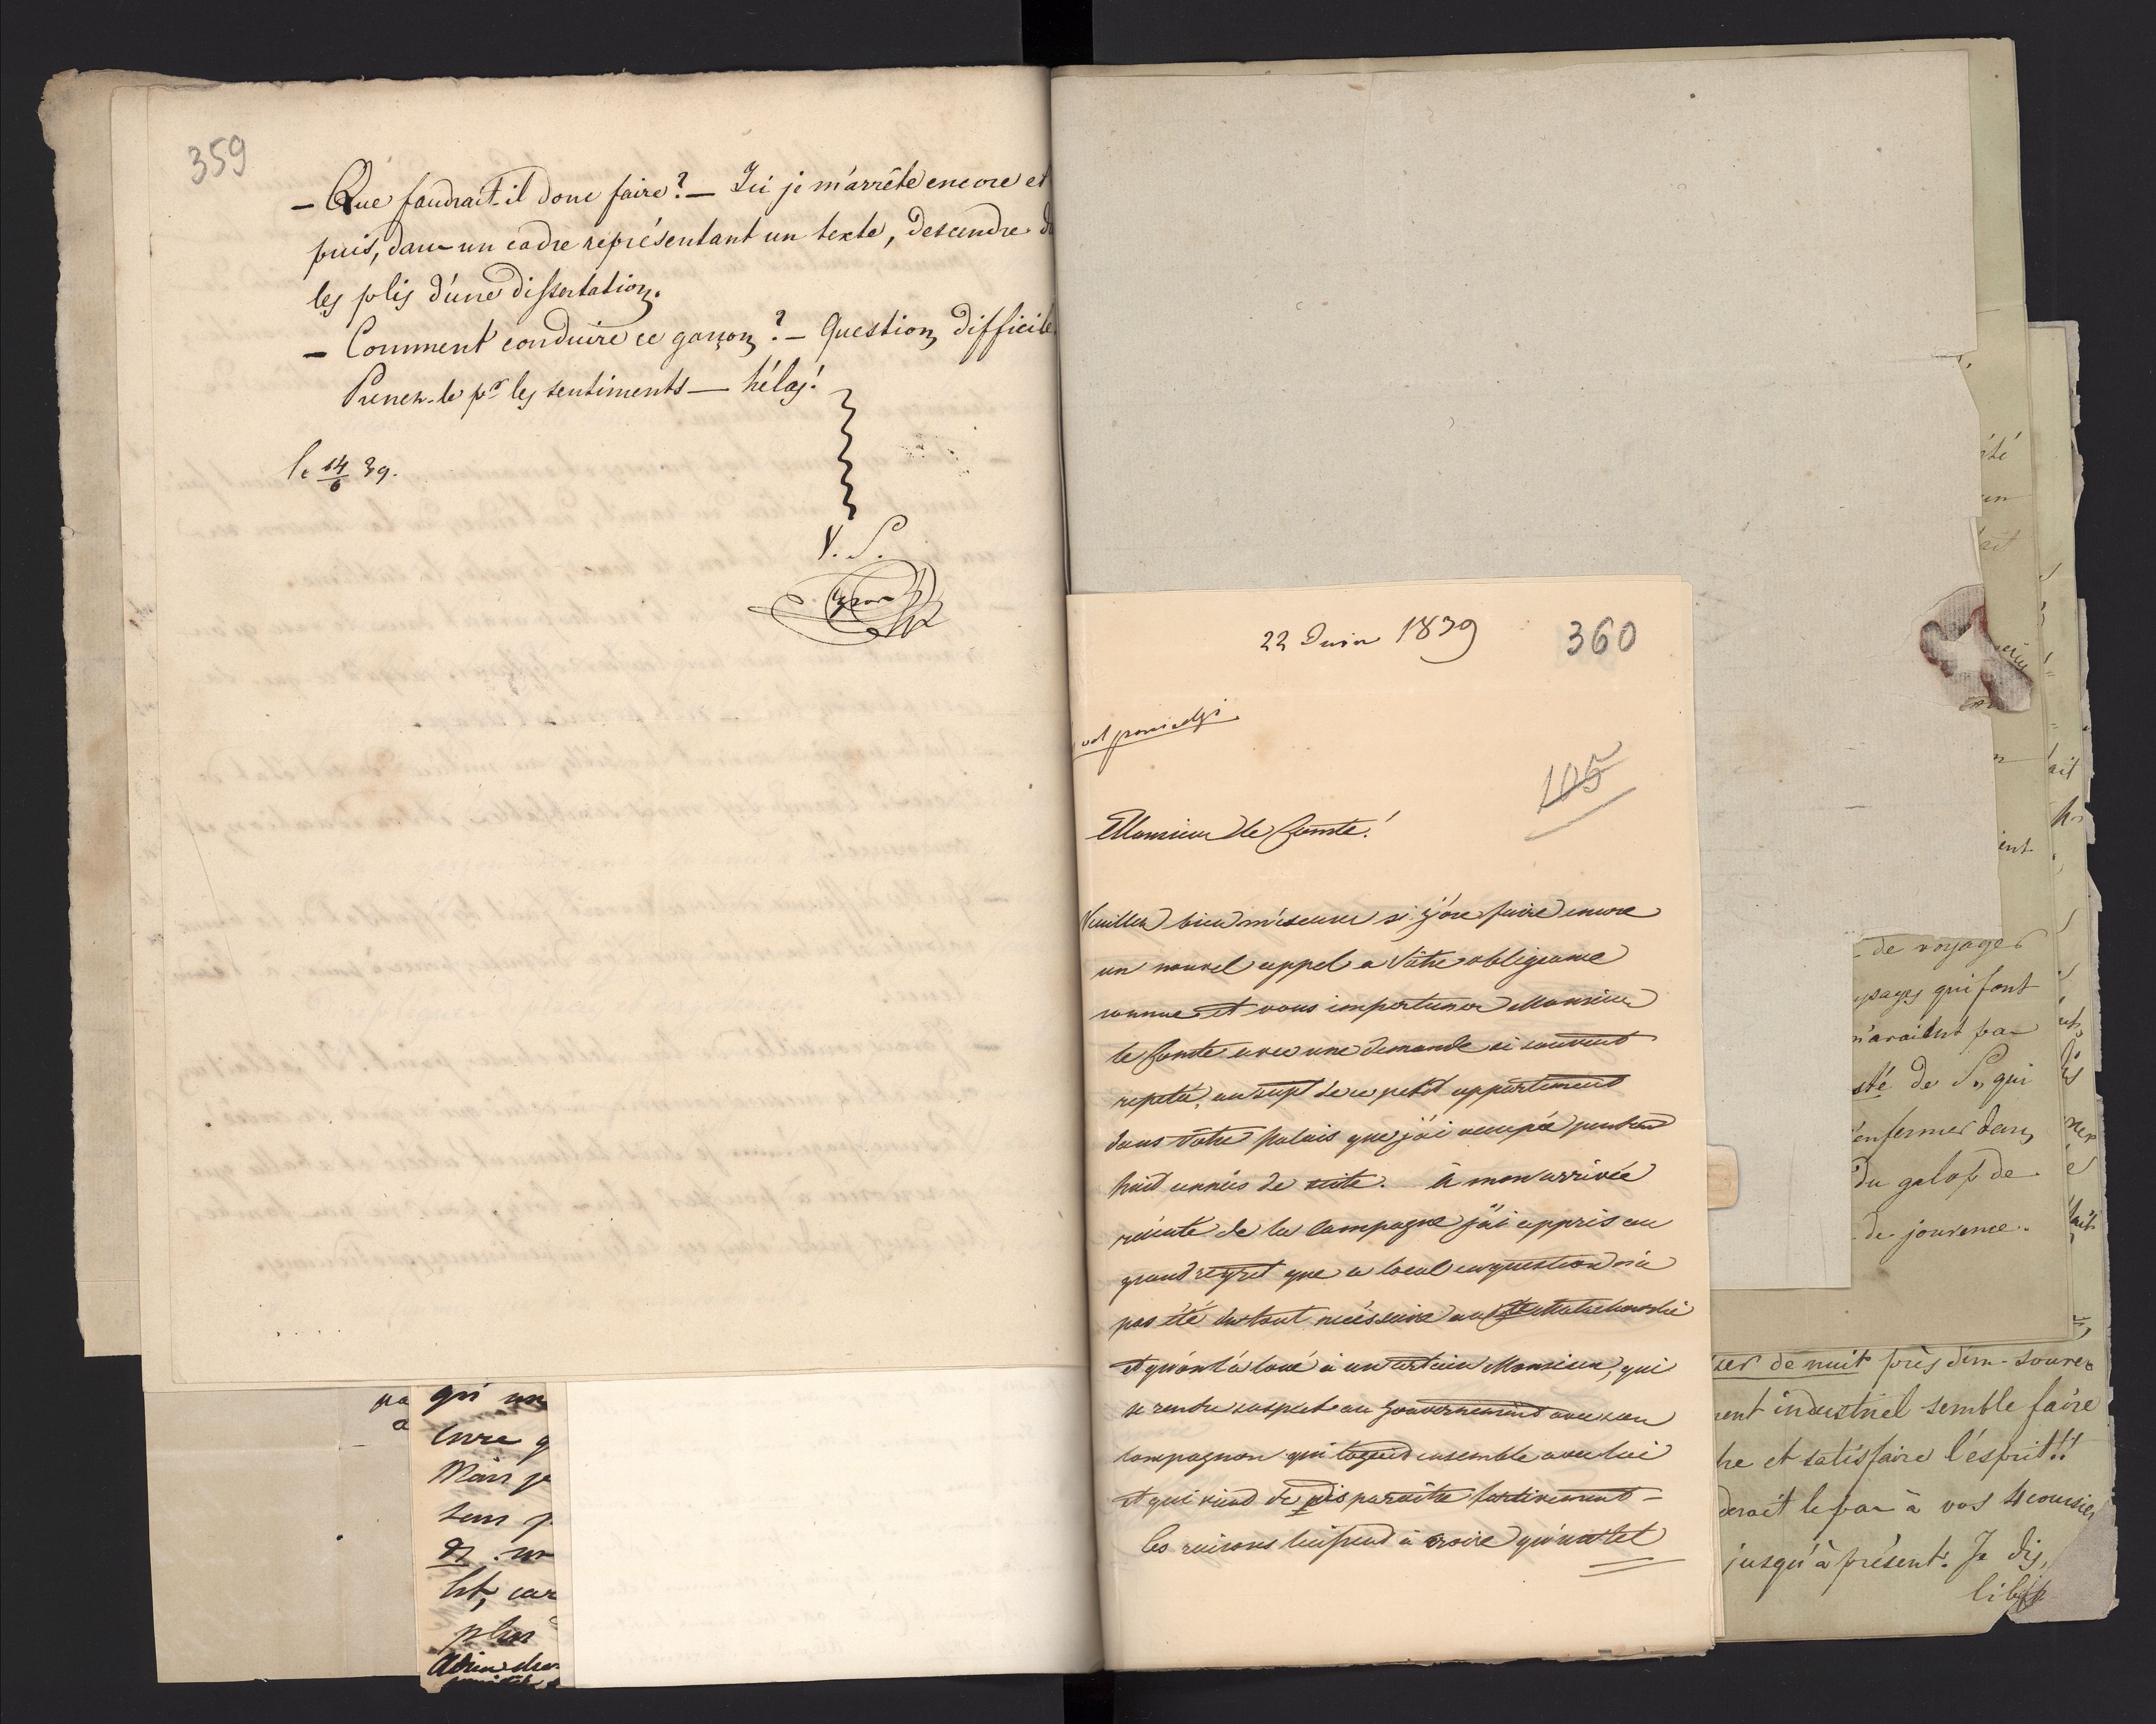 359
— Que faudrait-il donc faire? — Ici je m'arrête encore et
puis, dans un cadre représentant un texte, descendre d
les plis d'une dissertation.
— Comment conduire ce garçon? — Question difficile
Prenez-le pr les sentiments — hélas!
le 14/6 39.
V. S.
22 Juin 1839
360
105
Monsieur le Comte!
Veuillez bien m'éscuser si j'ose faire encore
un nouvel appel a Vôtre obligeance
connue et vous importuner Monsieur
le Comte avec une demande si souvent
repetée, au sujet de ce petit appartement
dans Vôtre Palais que j'ai occupée pendant
huit années de suite. à mon arrivée
récente de la Campagne j'ai appris au
grand regret que ce local en question n'a
pas été du tout nécéssaire au
et qu'on l'a loué à un certain Monsieur, qui
se rendu suspect au Gouvernement avec son
Compagnon qui logeait ensemble avec lui
et qui vient de disparaître furtivement —
Ces raisons à croire qu'un tel
pa
a
qui un
livre q
Mais je
sens p
lit, car
plus
de voyages
ysages qui font
n'avaient pas
sté de S., qui
enfermer dans
du galop de
de jouvence.
ser de nuit près d'un
ent industriel semble faire
he et satisfaire l'esprit!!
derait le pas à vos 4 coursier
jusqu'à présent. Je dis,
été
en
ait
ent
ait